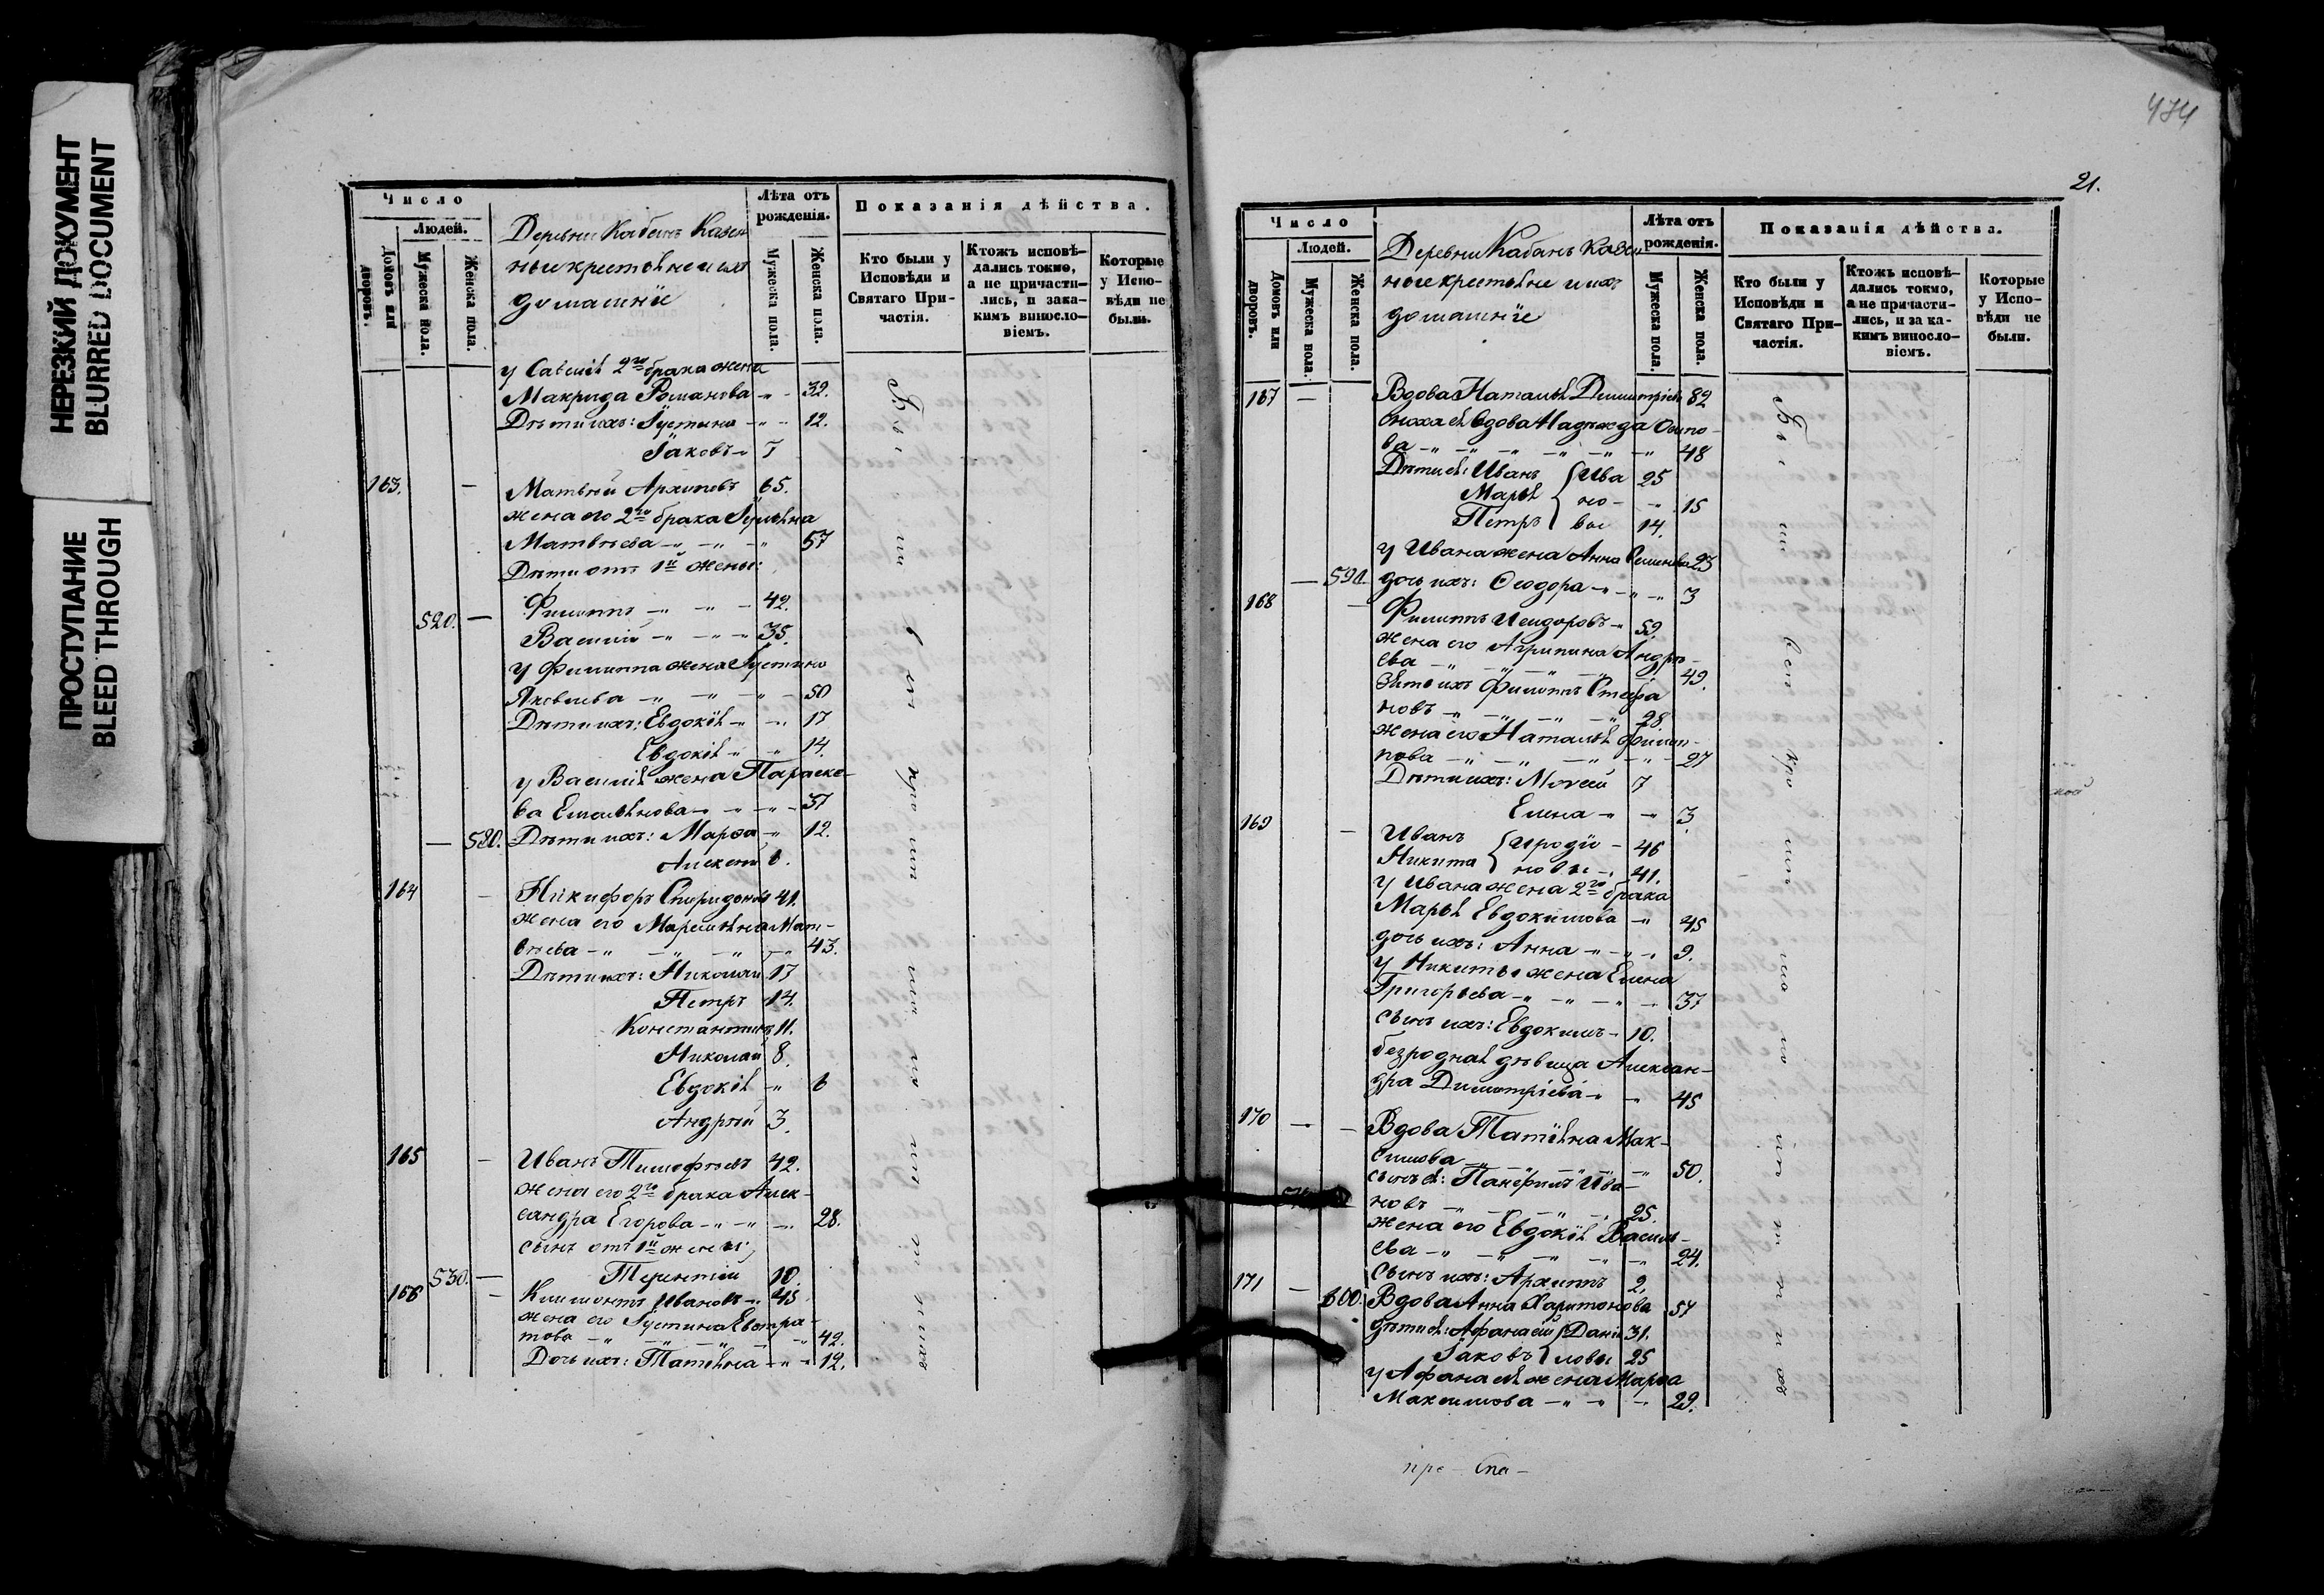 НЕРЕЗКИЙ ДОКУМЕНТ
BLURRED DOCUMENT
ПРОСТУПАНИЕ
BLEED THROUGH
Число
Людей.
Домовъ или дворовъ.
Мужеска пола.
Женска пола.
Деревни Кабанъ Казен
ные крестьяне и ихъ
домашніе
Лѣта отъ рожденія.
Мужеска пола.
Женска пола.
Показанія дѣйства.
Кто были у Исповѣди и Святаго Причастія.
Ктожъ исповѣдались токмо, а не причастились, и закакимъ винословіемъ.
Которые у Исповѣди не были.
у Савелія 2го брака жена
Макрида Романова 32.
Дѣти ихъ: Іустина 12.
Іаковъ 7
163. Матвѣй Архиповъ 65.
жена его 2го брака Іуліяна
Матвѣева 57
Дѣти отъ 1й жены:
Филиппъ 42.
520. Василій 35.
у Филиппа жена Іустина
Яковлева 50
Дѣти ихъ: Евдокія 17
Евдокія 14.
у Василія жена Параске-
ва Емельянова 37
580. Дѣти ихъ: Марѳа 12.
Алексѣй 6.
164 Никифоръ Спиридоновъ 41.
жена его Маремьяна Мат-
вѣева 43.
Дѣти ихъ: Николай 17
Петръ 14.
Константинъ 11.
Николай 8.
Евдокія 6
Андрей 3.
165 Иванъ Тимофѣевъ 42.
жена его 2го брака Алек-
сандра Егорова 28.
сынъ отъ 1й жены;
530. Терентій 10.
166 Климонтъ Ивановъ 45
жена его Іустина Евстра-
това 42.
Дочь ихъ: Татіяна 12.
474
21.
Число
Людей.
Домовъ или дворовъ.
Мужеска пола.
Женска пола.
Деревни Кабанъ Казен
ные крестьяне и ихъ
домашніе
Лѣта отъ рожденія.
Мужеска пола.
Женска пола.
Показанія дѣйства.
Кто были у Исповѣди и Святаго Причастія.
Ктожъ исповѣдались токмо, а не причастились, и за какимъ винословіемъ.
Которые у Исповѣди не были.
167 Вдова Наталья Димитріева 82
сноха ея вдова Надежда Осипо-
ва 48
Дѣти ея: Иванъ Ива 25
Марья но- 15
Петръ вы 14.
у Ивана жена Анна Семенова 23
590. дочь ихъ: Ѳеодора 3
168 Филиппъ Исидоровъ 59.
жена его Агрипина Андрѣ-
ева 49.
Зять ихъ Филиппъ Стефа
новъ 28.
жена его Наталья Филип-
пова 27
Дѣти ихъ: Моѵсей 7
Елена 3.
169 Иванъ Иродіо- 46
Никита новы 41.
у Ивана жена 2го брака
Марья Евдокимова 45
дочь ихъ: Анна 9.
у Никиты жена Елена
Григорьева 37
сынъ ихъ: Евдокимъ 10.
безродная дѣвица Алексан-
дра Димитріева 45
170 Вдова Татіяна Мак-
симова 50.
сынъ ея: Панфилъ Ива-
новъ 25.
жена его Евдокія Василь-
ева 24.
Сынъ ихъ: Архиппъ 2.
171 600. Вдова Анна Харитонова 57
дѣти ея: Афанасій Дани 31.
Іаковъ ловы 25
у Афанасія жена Марѳа
Максимова 29.